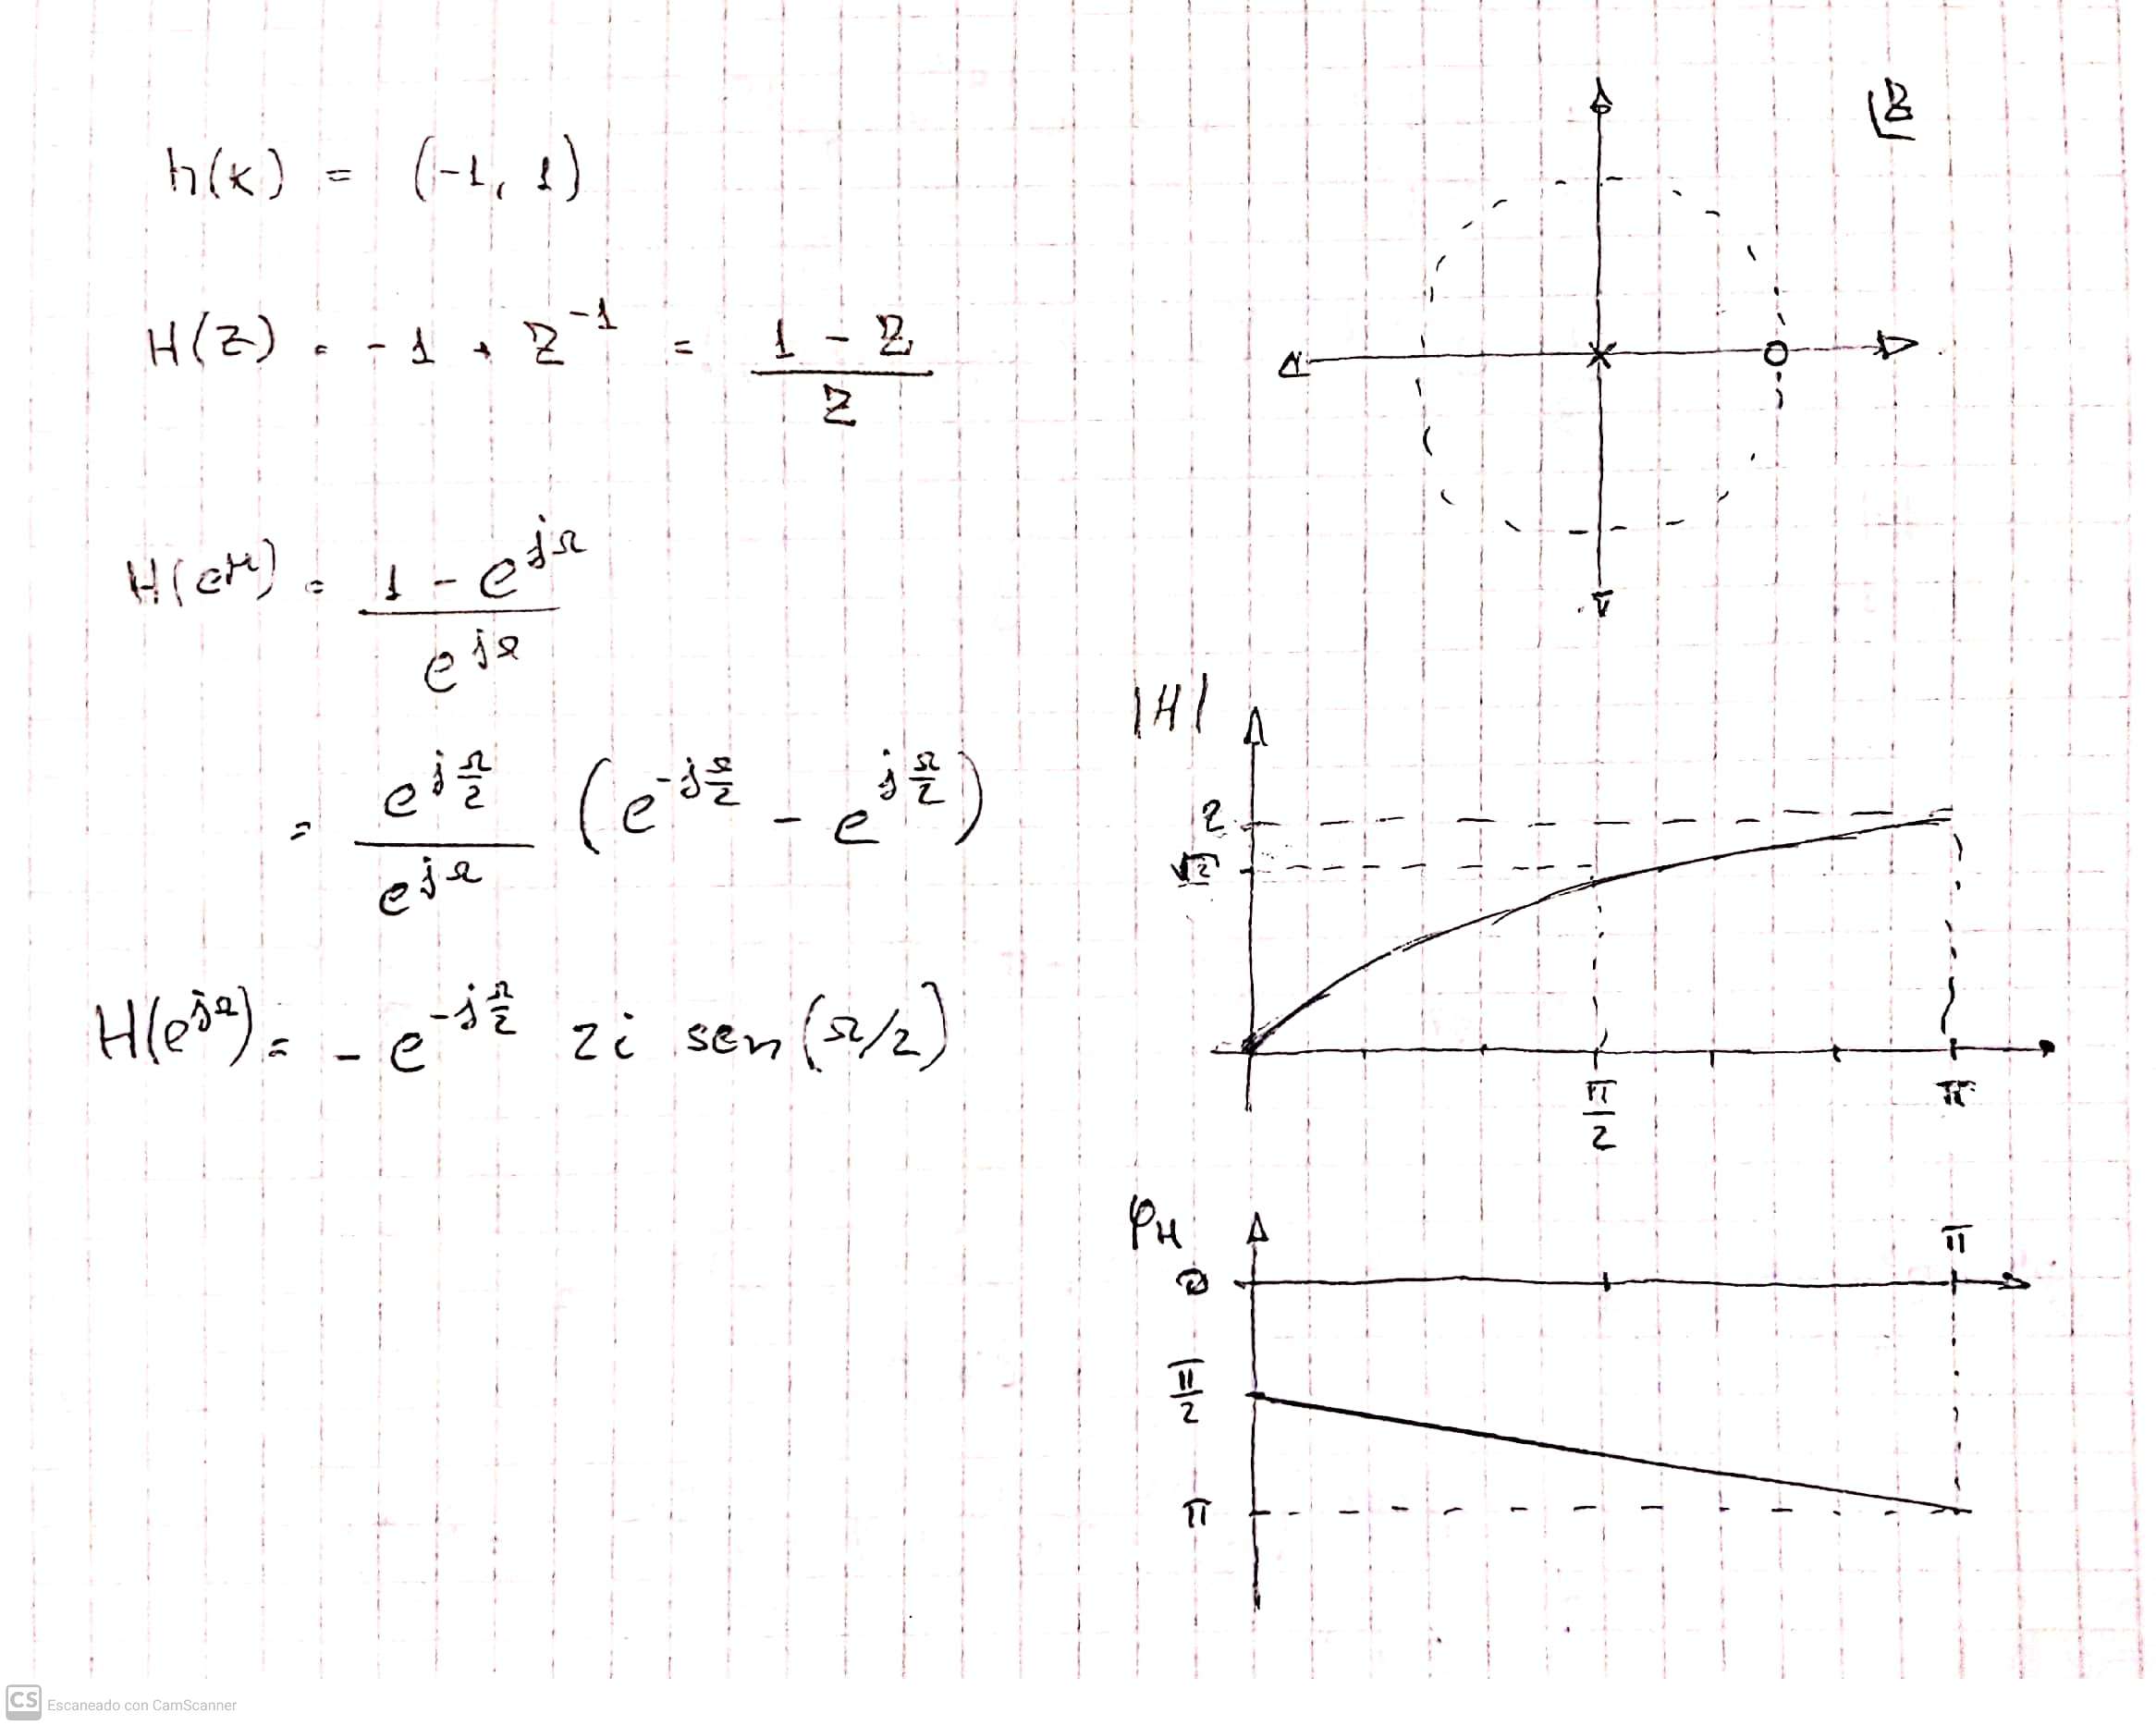 h(k) = (-1, 1)
H(z) = -1 + z^{-1} = \frac{1 - z}{z}
H(e^{jΩ}) = \frac{1 - e^{jΩ}}{e^{jΩ}}
= \frac{e^{j\frac{Ω}{2}}}{e^{jΩ}} (e^{-j\frac{Ω}{2}} - e^{j\frac{Ω}{2}})
H(e^{jΩ}) = - e^{-j\frac{Ω}{2}} 2i sen(Ω/2)
z
|H|
2
√2
\frac{π}{2} π
φ_H
0 π
\frac{π}{2}
π
CS Escaneado con CamScanner